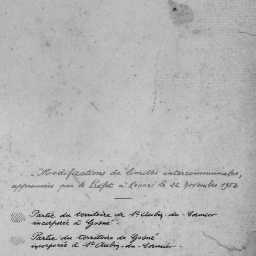 Modifications de limites intercommunales,
approuvées par le Préfet à le 22 Novembre 1952
Partie du territoire de St Aubin-du-Cormier
incorporée à Gosné
Partie du territoire de Gosné
incorporée à St Aubin-du-Cormier.